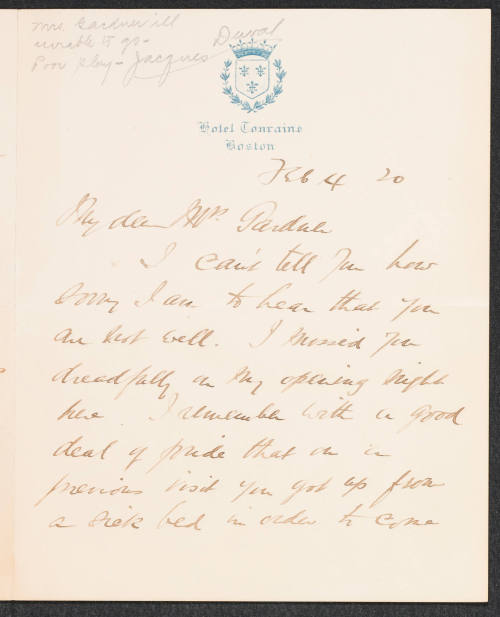 Mrs. Gardner ill
unable to go-
Poor play- Jacques Duval
Hotel Touraine
Boston
Feb 4 20
My dear Mrs. Gardner
I can't tell you how
sorry I am to hear that you
are not well. I missed you
dreadfully on my opening night
here. I remember with a good
deal of pride that on a
previous visit you got up from
a sick bed in order to come